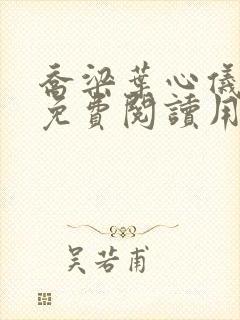 喬梁葉心儀
免費閱讀用
吳若甫